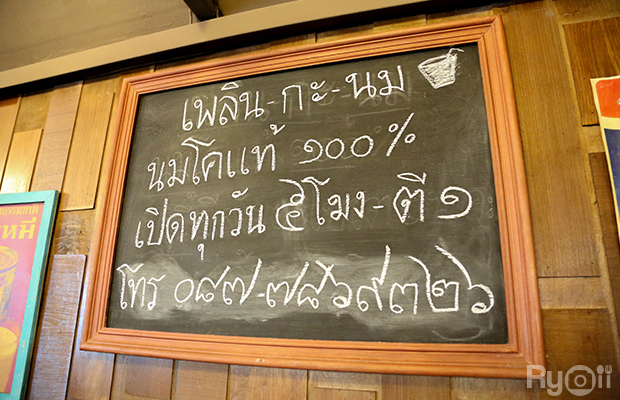 เพลิน-กะ-นม
นมโคแท้ ๑๐๐%
เปิดทุกวัน ๕โมง-ตี ๑
โทร ๐๘๗-๗๘๖๙๓๒๖
หมี
Ryoii